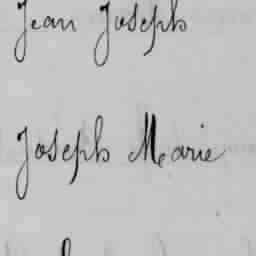 Jean Joseph
Joseph Marie